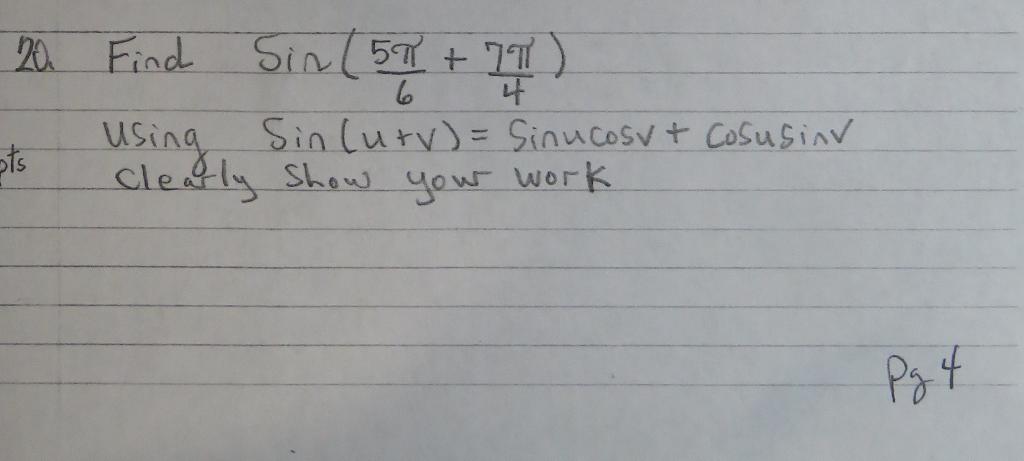 20. Find Sin(5π/6 + 7π/4)
Using Sin(u+v) = Sinucosv + Cosusinv
pts Clearly Show your work
Pg 4